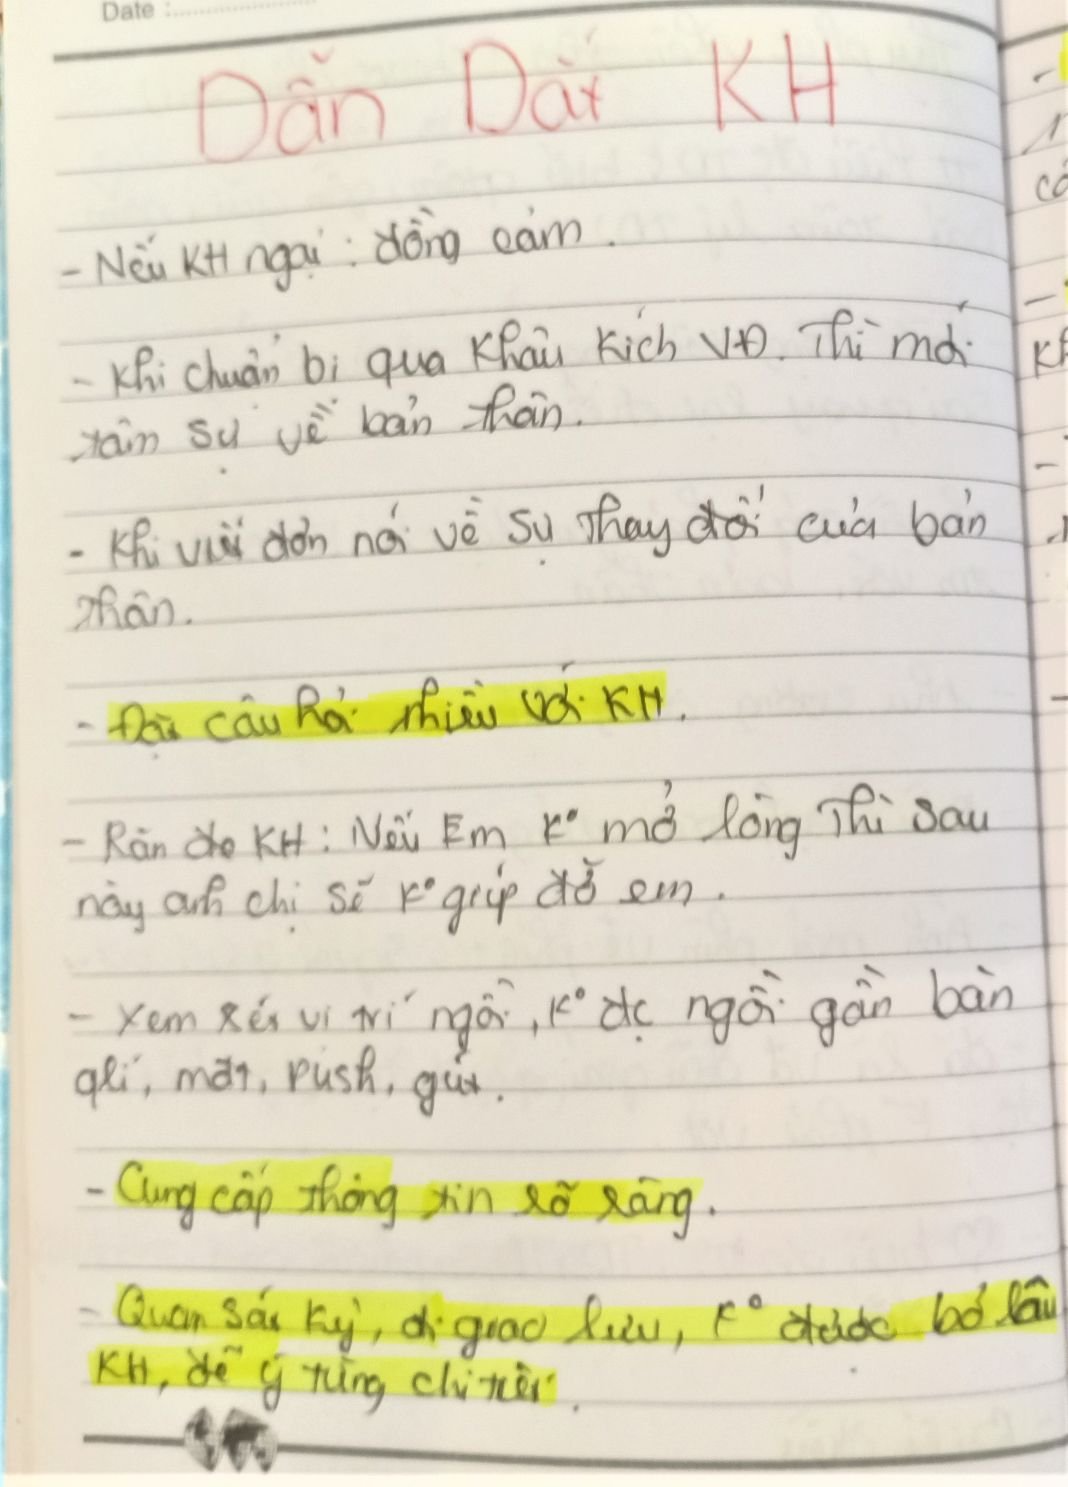 Date :
Dẫn Dắt KH
- Nếu KH ngại : đồng cảm.
- Khi chuẩn bị qua Khâu Kích VĐ. Thì mới
tâm sự về bản thân.
- Khi viết đơn nói về sự thay đổi của bản
thân.
- Đặt câu hỏi nhiều với KH.
- Răn đe KH : Nếu Em K° mở lòng Thì sau
này anh chị sẽ K° giúp đỡ em.
- Xem xét vị trí ngồi, K° đc ngồi gần bàn
qlí, mát, push, gút.
- Cung cấp thông tin rõ ràng.
- Quan sát kỹ, đi giao lưu, K° được bỏ lâu
KH, để ý từng chi tiết.